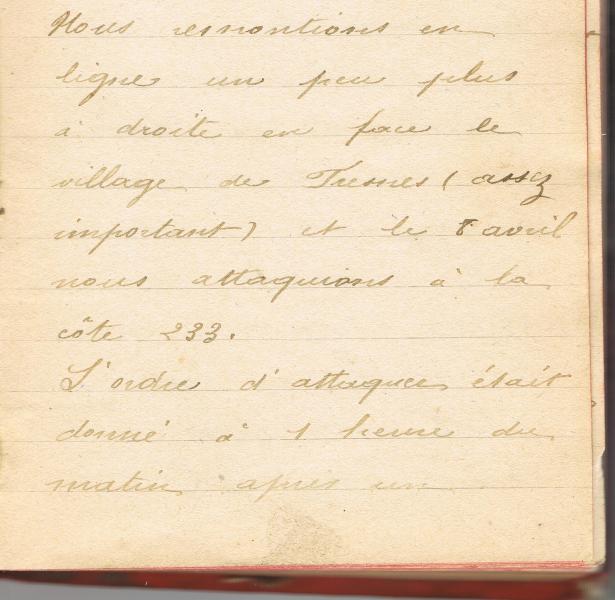 Nous remontions en
ligne un peu plus
à droite en face le
village de Fresnes (assez
important) et le 8 avril
nous attaquions à la
côte 233.
L'ordre d'attaquer était
donné à 1 heure du
matin après un